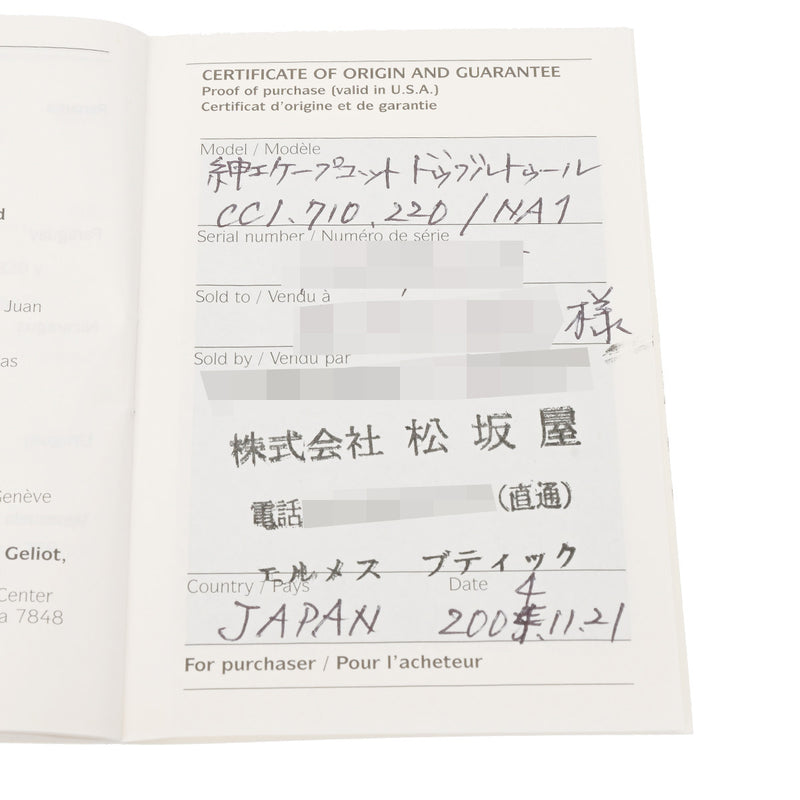 d
Juan
as
Genève
Geliot,
Center
a 7848
CERTIFICATE OF ORIGIN AND GUARANTEE
Proof of purchase (valid in U.S.A.)
Certificat d'origine et de garantie
Model / Modèle
紳エケープコット ドゥブルトゥール
CC1.710.220/NA1
Serial number / Numéro de série
Sold to / Vendu à
様
Sold by / Vendu par
株式会社 松坂屋
電話 (直通)
エルメス ブティック
Country / Pays
Date
JAPAN
4
2005.11.21
For purchaser / Pour l'acheteur